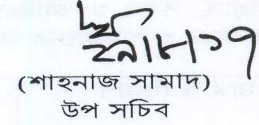 (শাহনাজ সামাদ)
উপ সচিব